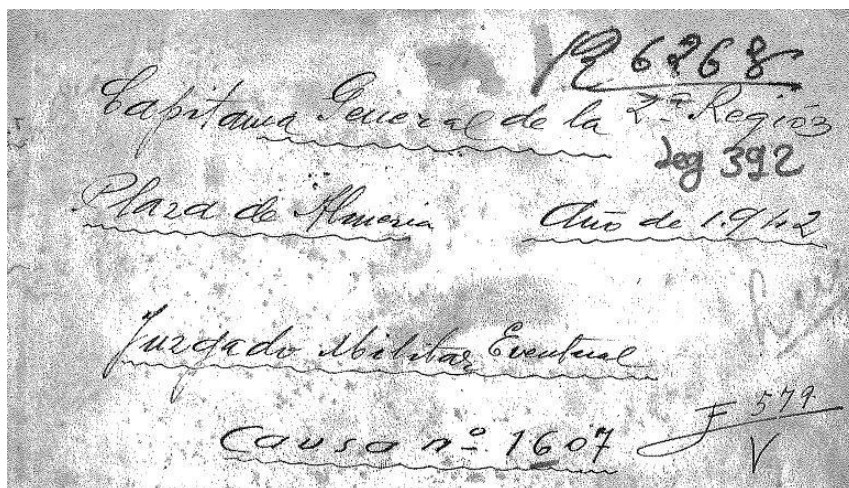 R 6268
Capitania General de la 2ª Región
Leg 392
Plaza de Almeria Año de 1.942
Juzgado Militar Eventual
F 579
Causa nº 1607
V